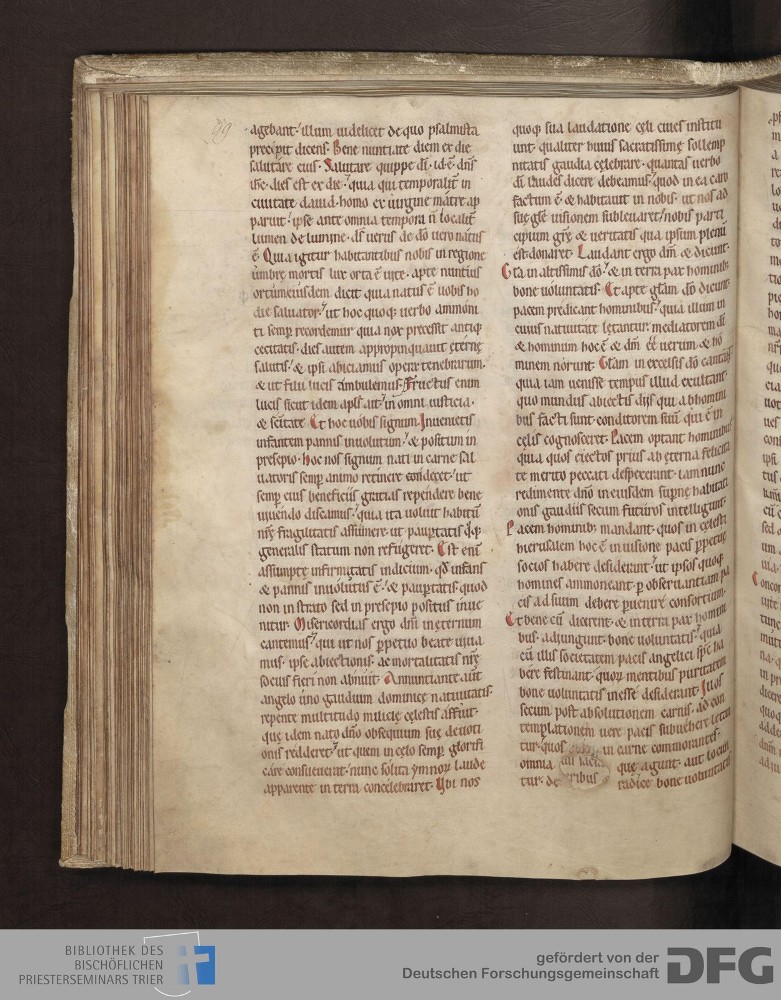 99
agebant. illum uidelicet de quo psalmista
precepit dicens. Bene nuntiate diem ex die
salutare eius. Salutare quippe di. id ē dn̄s
ih̄c dies est ex die. quia qui temporalit̄ in
ciuitate dauid homo ex uirgine matre ap
paruit. ipse ante omnia tempora n̄ localit̄
lumen de lumine. ds̄ uerus de dō uero natus
ē. Quia igitur habitantibus nobis in regione
umbrę mortis lux orta ē uitę. apte nuntius
ortum eiusdem dicit quia natus ē uobis ho
die saluator. ut hoc quoq; uerbo ammoni
ti semp recordemur quia nox precessit antiq
cecitatis. dies autem appropinquauit ęternę
salutis. & ipsi abiciamus opera tenebrarum.
& ut filii lucis ambulemus. Fructus enim
lucis sicut idem apl̄s ait. in omni iusticia.
& sc̄itate. Et hoc uobis signum. Inuenietis
infantem pannis inuolutum. & positum in
presepio. Hoc nos signum nati in carne sal
uatoris semp animo retinere condecet. ut
semp eius beneficiis gratias rependere bene
uiuendo discamus. quia ita uoluit habitū
nrę fragilitatis assumere. ut paup̄tatis q̄q;
generalis statum non refugeret. Est eni
assumptę infirmitatis indicium. qd̄ infans
& pannis inuolutus ē. & paup̄tatis. quod
non in strato sed in presepio positus inue
nitur. Misericordias ergo dn̄i in ęternum
cantemus. qui ut nos p̄petuo beate uiua
mus. ipse abiectionis. ac mortalitatis nrę
socius fieri non abnuit. Annuntiante aūt
angelo uno gaudium dominicę natiuitatis.
repente multitudo milicię cęlestis affuit.
quę idem nato dn̄o obsequium suę deuoti
onis redderet. ut quem in cęlo semp glorifi
care consueuerat. nunc solita ymnoꝝ laude
apparente in terra concelebraret. Ubi nos
quoq; sua laudatione cęli ciues institu
unt. qualiter huius sacratissimę sollemp
nitatis gaudia cęlebrare. quantas uerbo
di laudes dicere debeamus. quod in ea caro
factum ē. & habitauit in nobis. ut nos ad
suę gl̄ę uisionem subleuaret. nobis parti
cipium gr̄ę & ueritatis qua ipsum plenū
est donaret. Laudant ergo dm̄ & dicunt.
Gl̄a in altissimis dō. & in terra pax hominib;
bone uoluntatis. Et apte gl̄am dō dicunt.
pacem predicant hominibus. quia illum in
cuius natiuitate lętantur. mediatorem di
& hominum. hoc ē & dm̄ ēē uerum. & ho
minem nórunt. Gl̄am in excelsis dō cantant
quia iam uenisse tempus illud exultant.
quo mundus abiectis diis qui ab homini
bus facti sunt. conditorem suū qui ē in
cęlis cognosceret. Pacem optant hominibus
quia quos eiectos prius ab ęterna felicita
te merito peccati despexerant. iam nunc
redimente dn̄o in eiusdem supnę habitati
onis gaudiis secum futuros intelligunt.
Pacem hominib; mandant. quos in cęlesti
hierusalem hoc ē in uisione pacis p̄petuę
socios habere desiderant. ut ipsos quoq;
homines ammoneant. p obseruantiam pa
cis ad suum debere puenire consortium.
Et bene cū dicerent. & in terra pax homini
bus. adiungunt. bone uoluntatis. quia
cū illis societatem pacis angelici spc̄ ha
bere festinant. quoꝝ mentibus puritatem
bone uoluntatis inesse desiderant. Illos
secum post absolutionem carnis. ad con
templationem uere pacis subuehere letan
tur. quos in carne commorantes.
omnia quę agunt. aut locun
tur. de radice bone uoluntatis
BIBLIOTHEK DES
BISCHÖFLICHEN
PRIESTERSEMINARS TRIER
gefördert von der
Deutschen Forschungsgemeinschaft
DFG